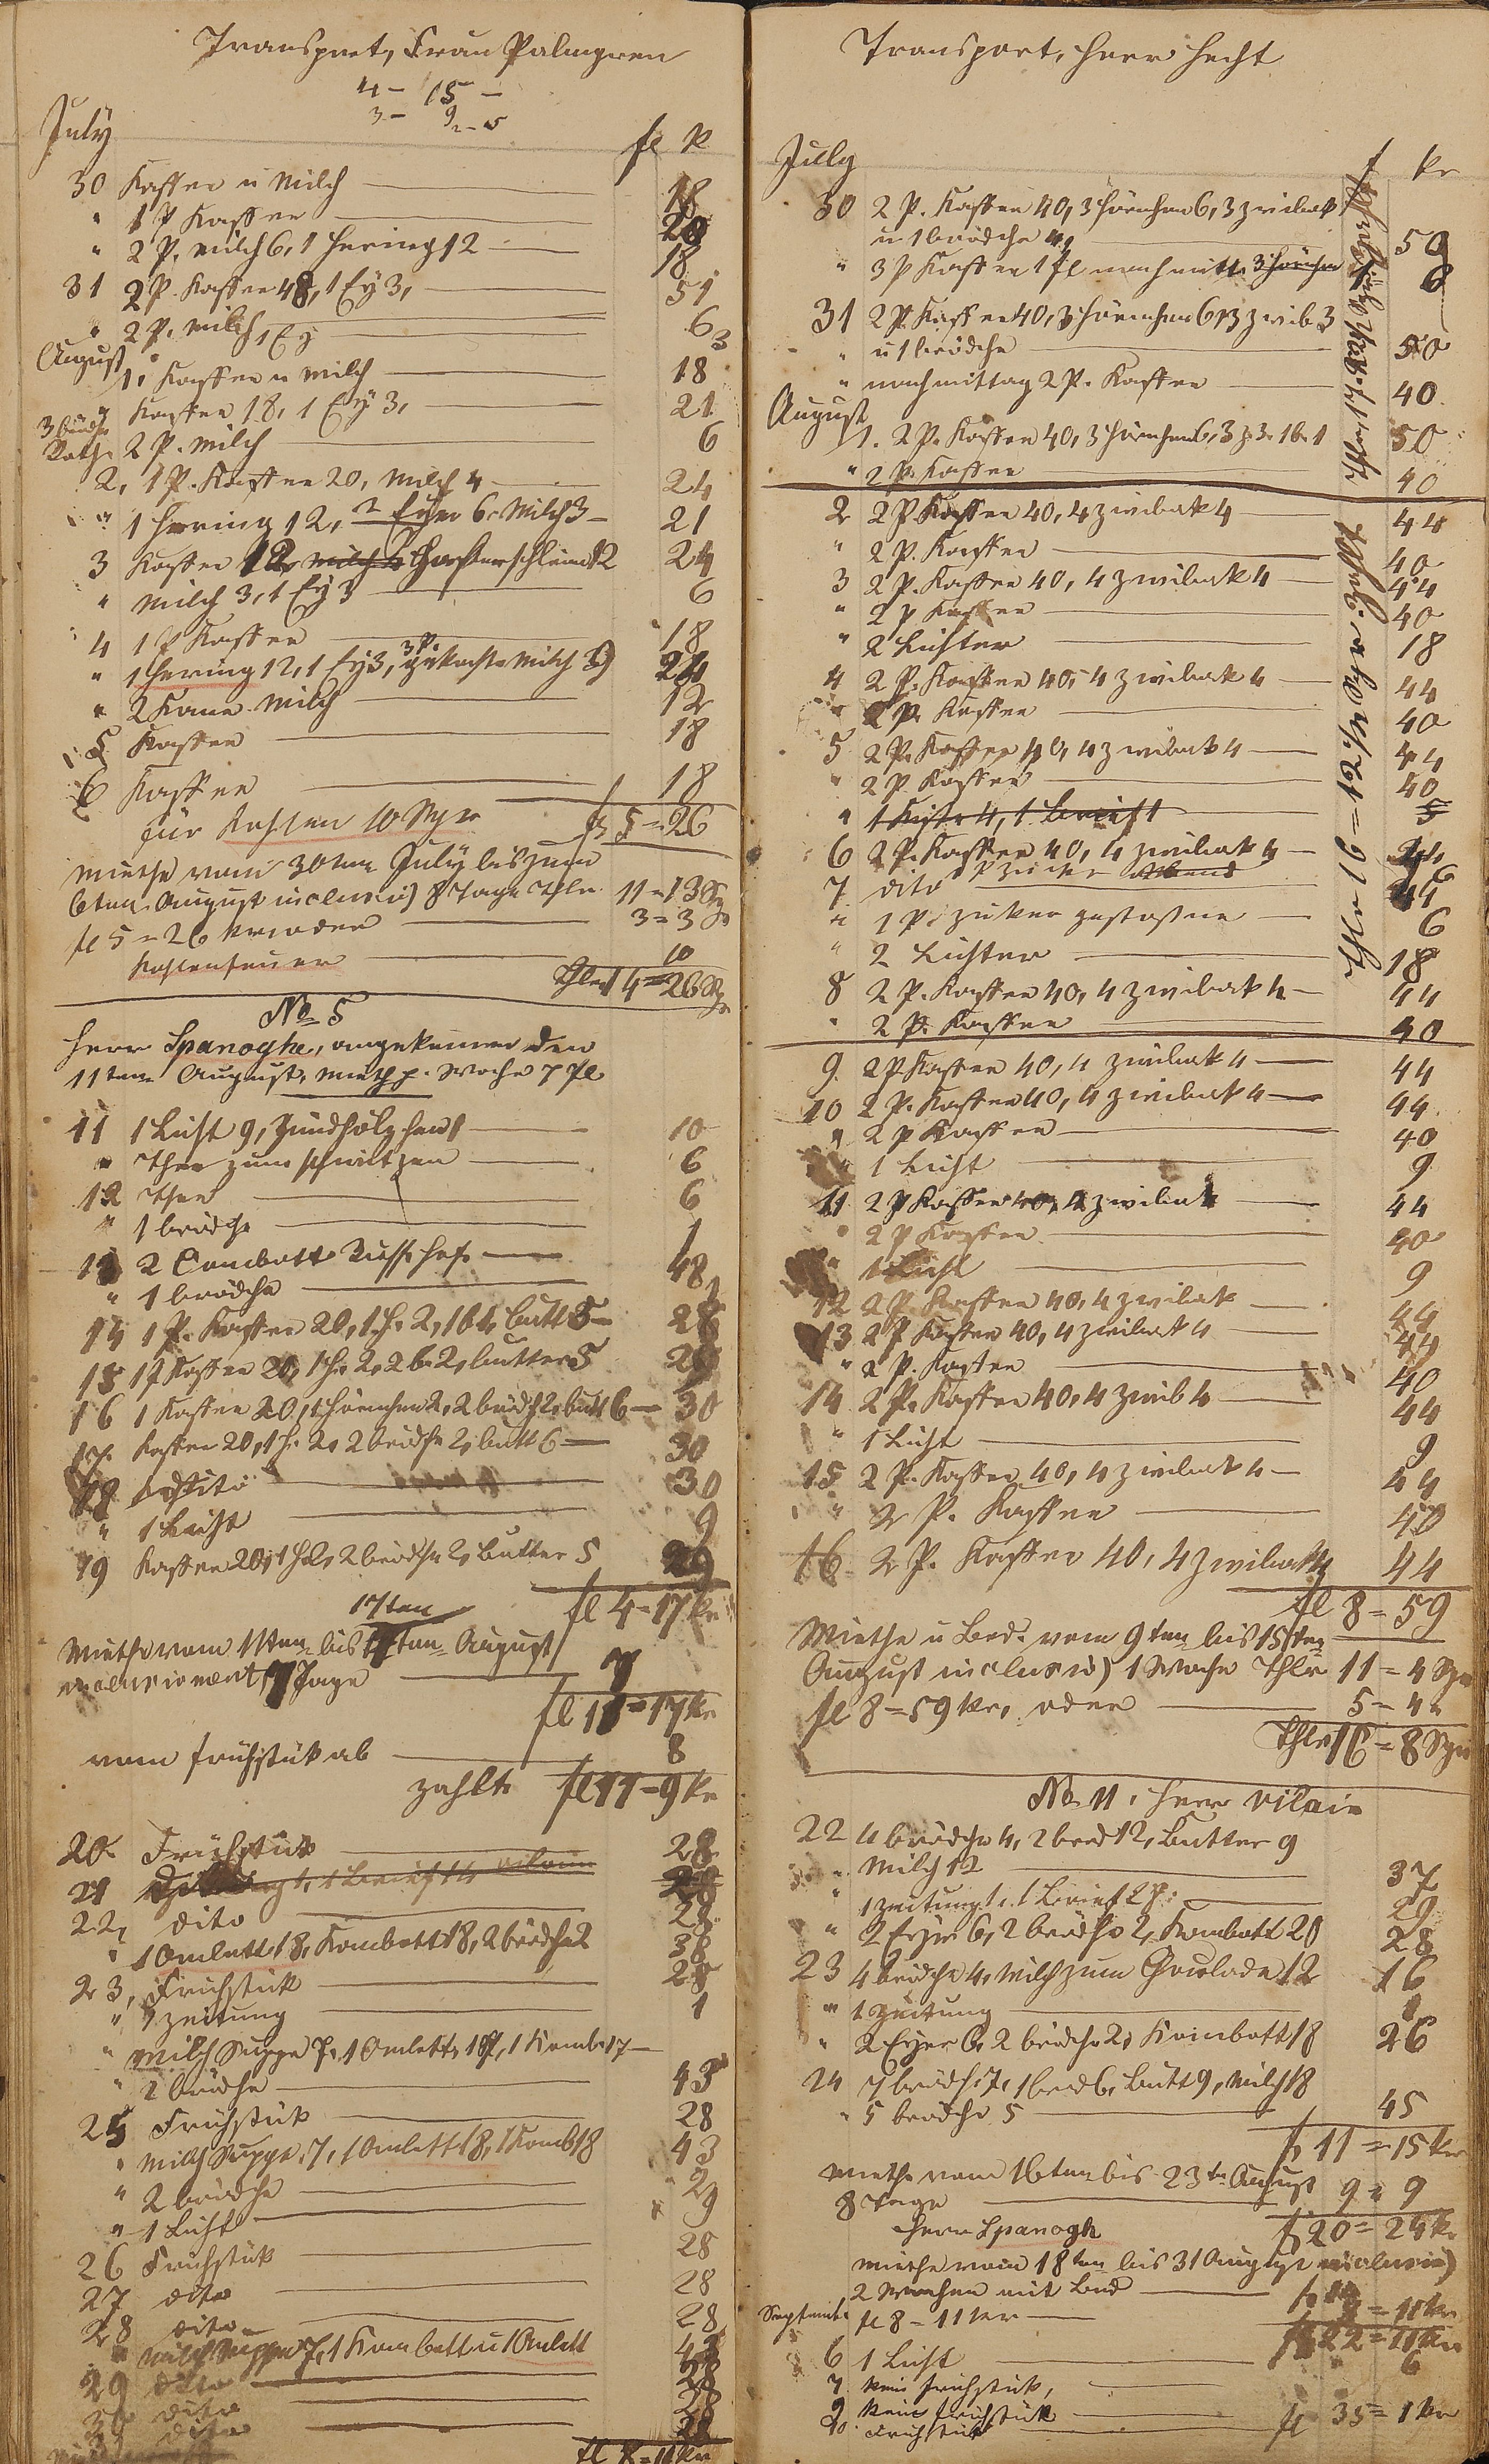 Transport, Frau Palmgren
4 – 15 –
3 – 9 – 5
July fl k
30 Kaffee u Milch — 18
" 1 P Kaffee — 20
" 2 P. Milch 6, 1 Hering 12 — 18
31 2 P. Kaffee 48, 1 Ey 3, — 51
" 2 P. Milch 1 Ey — 6 3
August
1. Kaffee u Milch — 18
" Kaffee 18, 1 Ey 3, — 21
2 P. Milch — 6
2, 1 P. Kaffee 20, Milch 4 — 24
" 1 Hering 12, 2 Eyer 6. Milch 3 — 21
3 Kaffee 12 Milch 4 Haferschleim 12 24
" Milch 3, 1 Ey 3 — 6
4 1 P Kaffee — 18
" 1 Hering 12, 1 Ey 3, 3 P. gekochte Milch 9 24
" 2 Kane Milch — 12
5 Kaffee — 18
6 Kaffee — 18
für Kohlen 10 Sgr fl 5 = 26
Miethe vom 30ten July bis zum
6ten August inclusiv) 8 Tage Thlr. 11 = 13 Sgr
fl 5 = 26 kr oder — 3 = 3
Kohlenfeuer — 10
Thlr 14 = 26 Sgr
No 5
Herr Spanoghe, angekommen den
11ten August, Mieth p. Woche 7 fl
11 1 Licht 9, Zündhölzchen 1 — 10
" Thee zum schwitzen — 6
12 Thee — 6
" 1 brödche — 1
13 2 Combott — 48
" 1 brödche — 1
14 1 P. Kaffee 20, 1 H. 2, 1 b 1, butt 5 — 28
15 1 P Kaffee 20, 1 H. 2, 2 b. 2, butter 5 29
16 1 Kaffee 20, 1 Hörnchen 2, 2 brödch 2, butt 6 — 30
17. Kaffee 20, 1 H. 2, 2 brödche 2, butt 6 — 30
18 dito — 30
" 1 Licht — 9
19 Kaffee 20, 1 H 2, 2 brödche 2, butter 5 29
fl 4 – 17 kr
17ten
Miethe vom 11ten bis ten August
inclusive 7 Tage — 7
fl 11 = 17 kr
vom frühstük ab — 8
zahlt fl 11 – 9 kr
20. Frühstük — 28
21 1 Brief 14
22, dito — 28
" 1 Omlett 18, Kombott 18, 2 brödche 2 38
23, Frühstük — 28
" 1 Zeitung — 1
" Milch Suppe 7, 1 Omlett 18, 1 Komb 17 —
" 2 brödche — 43
25 Frühstük — 28
" Milch Suppe 7, 1 Omlett 18, 1 Komb 18 43
" 2 brödche — 2
" 1 Licht — 9
26 Frühstük — 28
27 dito — 28
28 dito — 28
" Milch Suppe 7, 1 Kombott u 1 Omlett 43
29 dito — 28
30 dito 28
dito — 28
fl 8 = 11 kr
Transport, Herr Hecht
July f kr
30 2 P. Kaffee 40, 3 Hörnchen 6, 3 zwibak
u 1 brödche 4, 50
" 3 P Kaffee 1 fl nachmitt. 3 Hörnchen 1 6
31 2 P. Kaffee 40, 3 Hörnchen 6, 3 zwib. 3
" u 1 brödche — 50
" nachmittag 2 P. Kaffee — 40
August
1. 2 P. Kaffee 40, 3 Hörnchen 6, 3 z. 3. 1 b. 1 50
" 2 P. Kaffee — 40
2 2 P Kaffee 40, 4 zwibak 4 — 44
" 2 P. Kaffee — 40
3 2 P. Kaffee 40, 4 zwibak 4 — 44
" 2 P Kaffee — 40
" 2 Lichter — 18
4 2 P. Kaffee 40, 4 zwibak 4 — 44
" 2 P. Kaffee — 40
5 2 P. Kaffee 40, 4 zwibak 4 — 44
" 2 P. Kaffee — 40
" 1 Kiste 4, 1 brief 1 — 5
6 2 P. Kaffee 40, 4 zwibak 4 — 44
7 dito 44
" 1 P. zuker gestoßene — 6
" 2 Lichter — 18
8 2 P. Kaffee 40, 4 zwibak 4 — 44
" 2 P. Kaffee — 40
9. 2 P Kaffee 40, 4 zwibak 4 — 44
10 2 P. Kaffee 40, 4 zwibak 4 — 44
" 2 P Kaffee — 40
" 1 Licht — 9
11 2 P Kaffee 40, 4 zwibak — 44
" 2 P Kaffee — 40
" 1 Licht — 9
12 2 P. Kaffee 40, 4 zwibak — 44
13 2 P Kaffee 40, 4 zwibak 4 — 44
" 2 P. Kaffee — 40
14 2 P. Kaffee 40, 4 zwib 4 — 44
" 1 Licht — 9
15 2 P. Kaffee 40, 4 zwibak 4 — 44
" 2 P. Kaffee — 40
16 2 P. Kaffee 40, 4 zwibak 4 44
fl 8 = 59
Miethe u Bed. vom 9ten bis 15ten
August inclusiv) 1 Woche Thlr 11 = 4 Sgr
fl 8 = 59 kr, oder — 5 = 4
Thlr 16 = 8 Sgr
No 11, Herr Vilain
22 4 brödche 4, 2 brod 12, Butter 9
" Milch 12 — 37
" 1 Zeitung 1, 1 Brief 28 — 29
" 2 Eyer 6, 2 brödche 2, Kombott 20 28
23 4 brödche 4, Milch zum Chocolade 12 16
" 1 Zeitung — 1
" 2 Eyer 6, 2 brödche 2, Kombott 18 26
24 7 brödch. 7, 1 brod 6, Butt 9, Milch 18
" 5 brödche 5 — 45
fl 11 = 15 kr
Miethe vom 16ten bis 23ten August
8 Tage — 9 = 9
fl 20 = 24 kr
Herr Spanogh
Miethe vom 18ten bis 31 August inclusiv)
2 Wochen mit Bed — fl 14
Septembr fl 8 – 11 kr — 8 = 11 kr
fl 22 = 11 kr
6 1 Licht — 6
7 kein frühstük,
9 kein frühstük
10. Frühstük — fl 35 = 1 kr